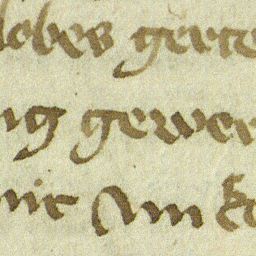 lobes gerte
ng gewer
nit Am ko